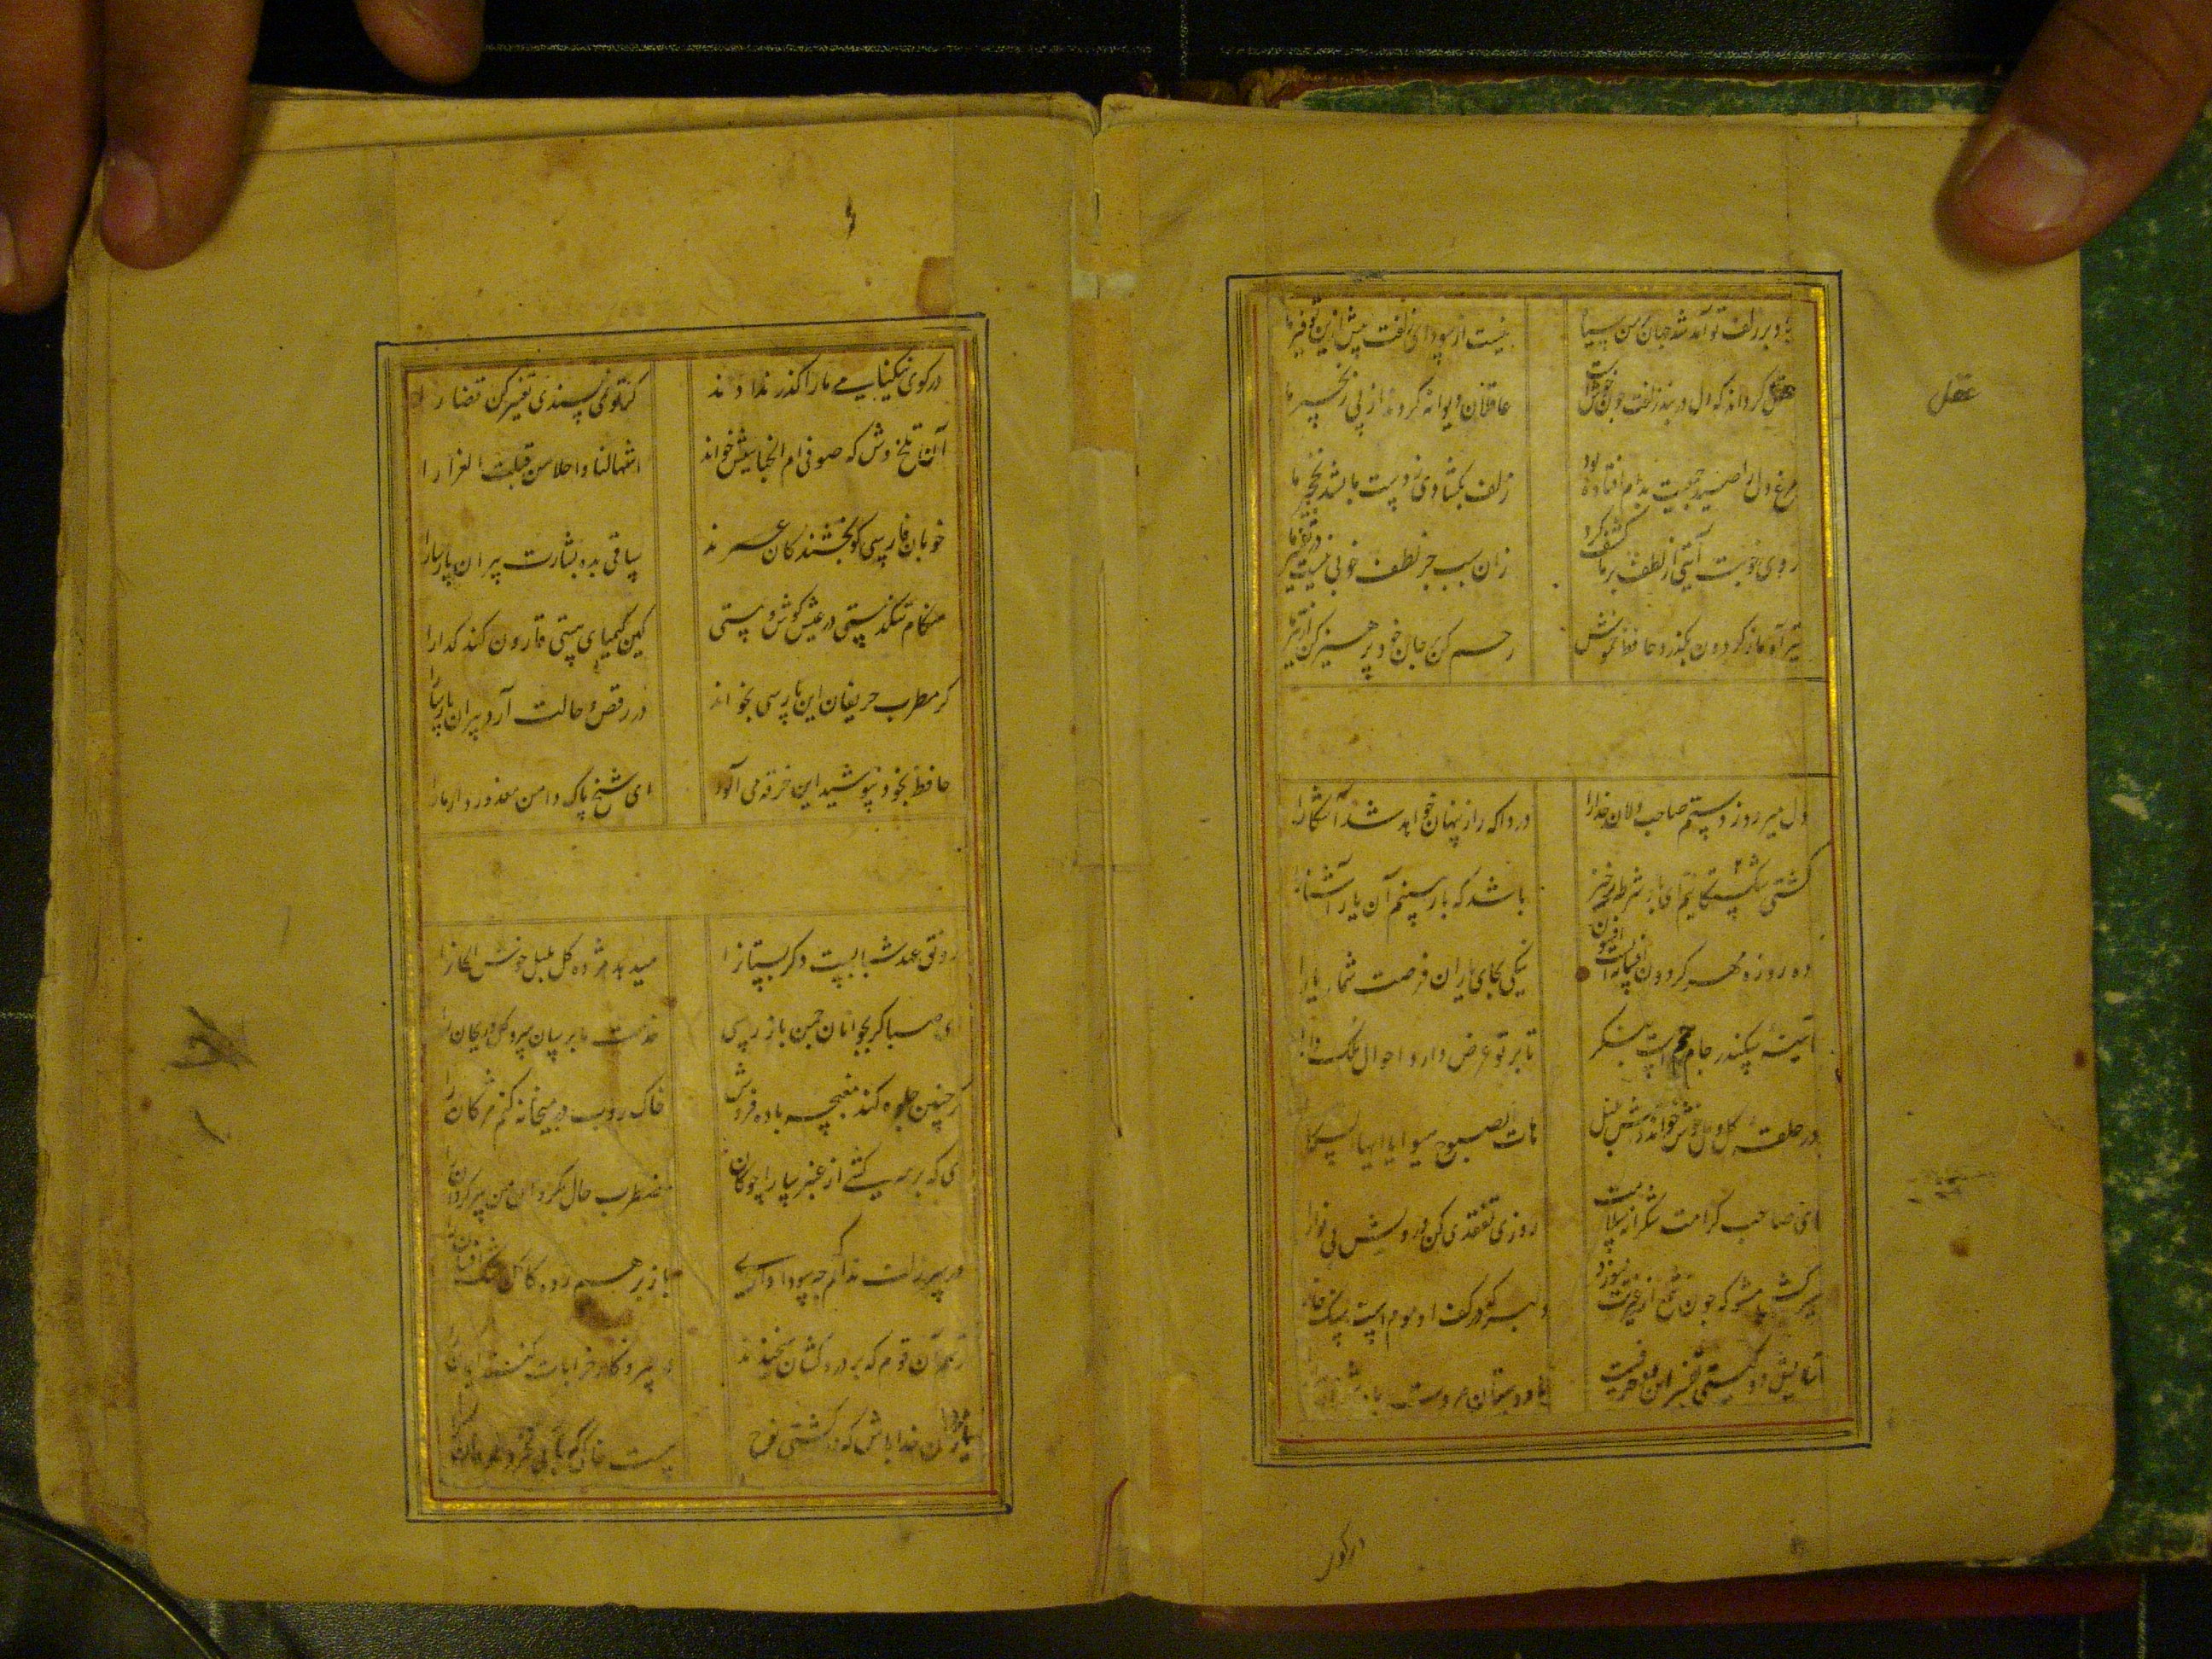 باد بر زلف تو آمد شد جهان بر من سیاه نیست از سودای زلفت بیش ازین توفیر ما
عقل گر داند که دل در بند زلفت چون خوشست عاقلان دیوانه گردند از پی زنجیر ما
عقل
مرغ دل را صید جمعیت بدام افتاده بود زلف بگشادی ز دست ما بشد نخجیر ما
روی خوبت آیتی از لطف بر ما کشف کرد زان سبب جز لطف و خوبی نیست در تفسیر ما
تیر آه ما ز گردون بگذرد حافظ خموش رحم کن بر جان خود پرهیز کن از تیر ما
دل میرود ز دستم صاحب دلان خدا را دردا که راز پنهان خواهد شد آشکارا
کشتی شکستگانیم ای باد شرطه برخیز باشد که باز بینم آن یار آشنا را
ده روزه مهر گردون افسانه است افسون نیکی بجای یاران فرصت شمار یارا
آیینه سکندر جام جم است بنگر تا بر تو عرض دارد احوال ملک دارا
در حلقه گل و مل خوش خواند دوش بلبل هات الصبوح هبوا یا ایها السکارا
ای صاحب کرامت شکرانه سلامت روزی تفقدی کن درویش بی نوا را
سرکش مشو که چون شمع از غیرتت بسوزد دلبر که در کف او موم است سنگ خارا
آسایش دو گیتی تفسیر این دو حرفست با دوستان مروت با
در کوی
در کوی نیکنامی ما را گذر ندادند گر تو نمی پسندی تغییر کن قضا را
آن تلخ وش که صوفی ام الخبایثش خواند اشهی لنا و احلی من قبلت العذارا
خوبان فارسی گو بخشندگان عمرند ساقی بده بشارت پیران پارسا را
هنگام تنگدستی در عیش کوش و مستی کین کیمیای هستی قارون کند گدا را
گر مطرب حریفان این پارسی بخواند در رقص و حالت آرد پیران پارسا را
حافظ بخود نپوشید این خرقه می آلود ای شیخ پاک دامن معذور دار ما را
رونق عهد شبابست دگر بستانرا میرسد مژده گل بلبل خوش الحانرا
ای صبا گر بجوانان چمن باز رسی خدمت ما برسان سرو و گل و ریحان را
گر چنین جلوه کند مغبچه باده فروش خاک روب در میخانه کنم مژگان را
ای که بر مه کشی از عنبر سارا چوگان مضطرب حال مگردان من سرگردان را
در سر زلف ندانم که چه سودا داری باز بر هم زده
ترسم آن قوم که بر دردکشان میخندند در سر کار خرابات کنند ایمان را
یار مردان خدا باش که در کشتی نوح هست خاکی که بآبی نخرد طوفان را